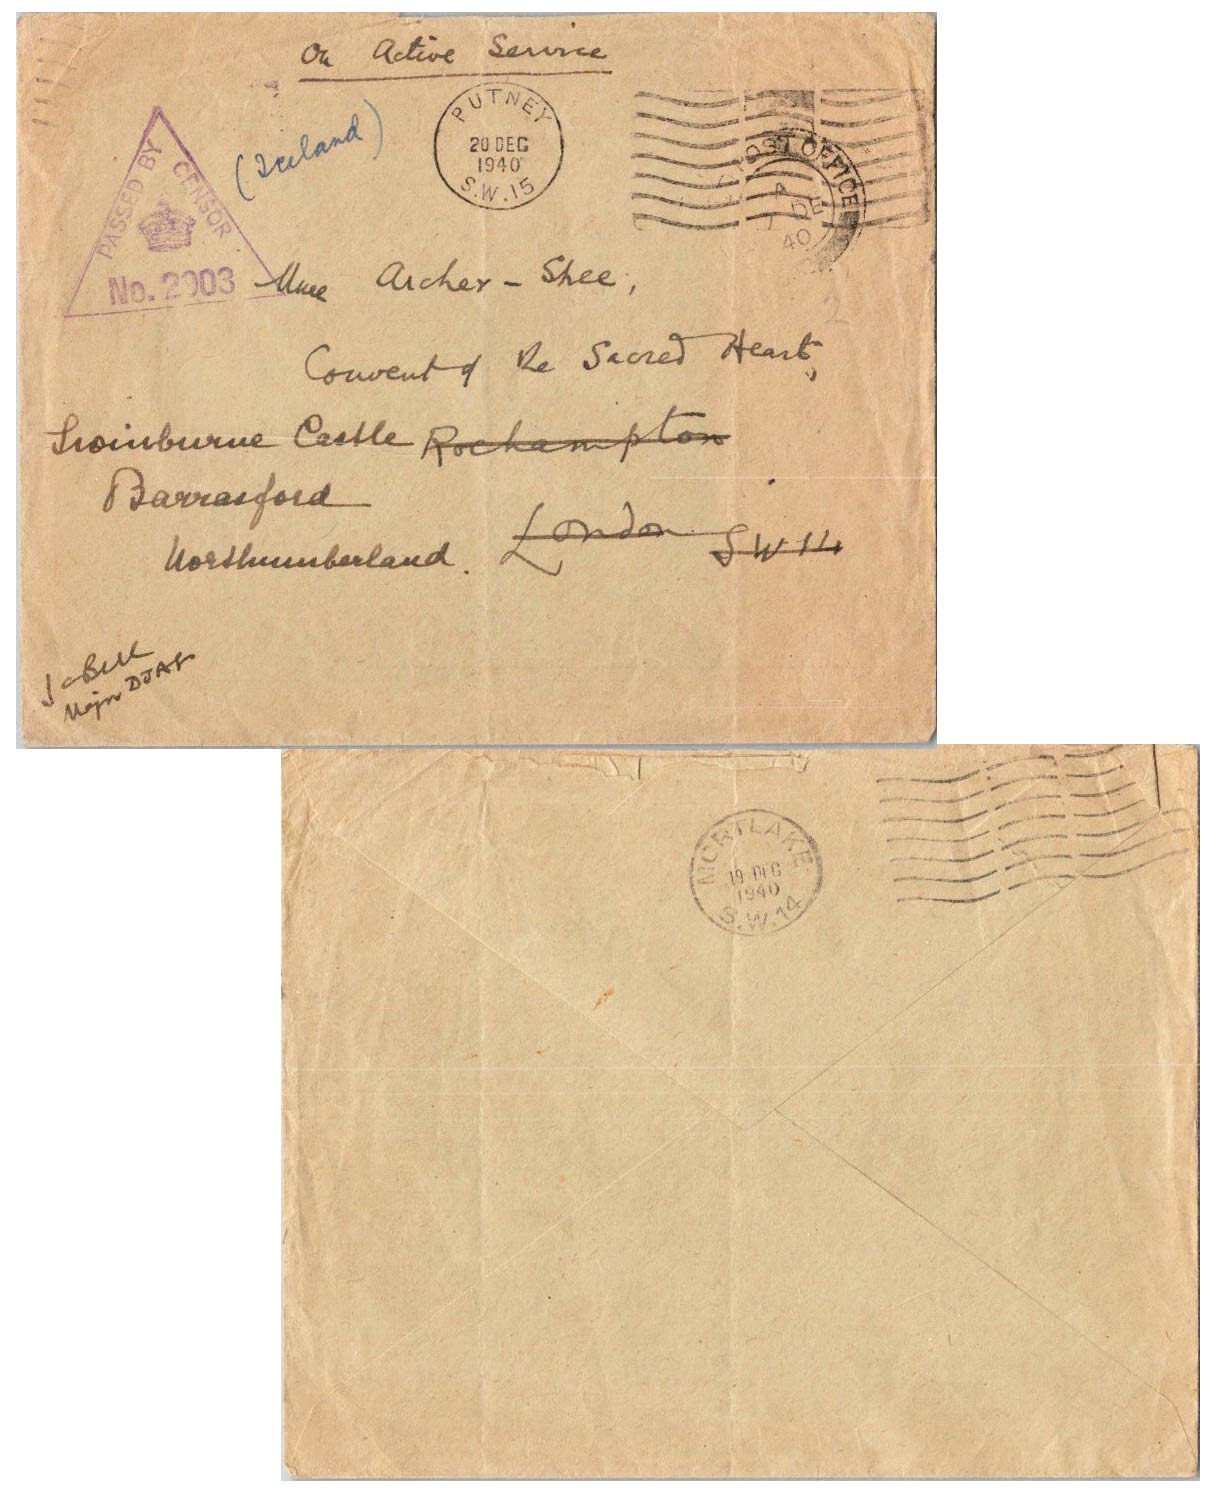 On Active Service
PASSED BY CENSOR
No. 2003
(Iceland)
PUTNEY
20 DEC
1940
S.W.15
POST OFFICE
DE
40
Archer-Shee,
Convent of the Sacred Heart,
Swinburne Castle Roehampton
Barrasford
London SW 14
Northumberland.
2
Bell
Major
MORTLAKE
19 DEC
1940
S.W.14